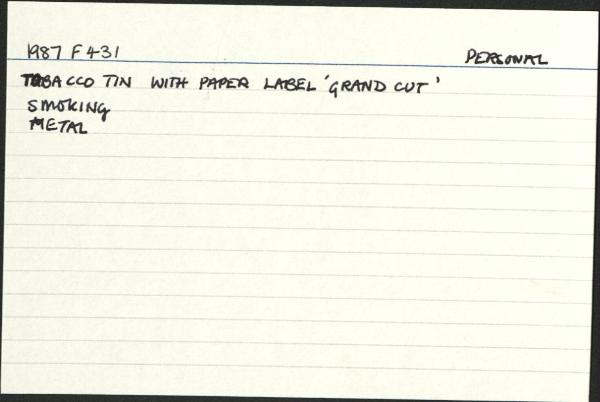 1987 F 431 PERSONAL
TOBACCO TIN WITH PAPER LABEL 'GRAND CUT'
SMOKING
METAL